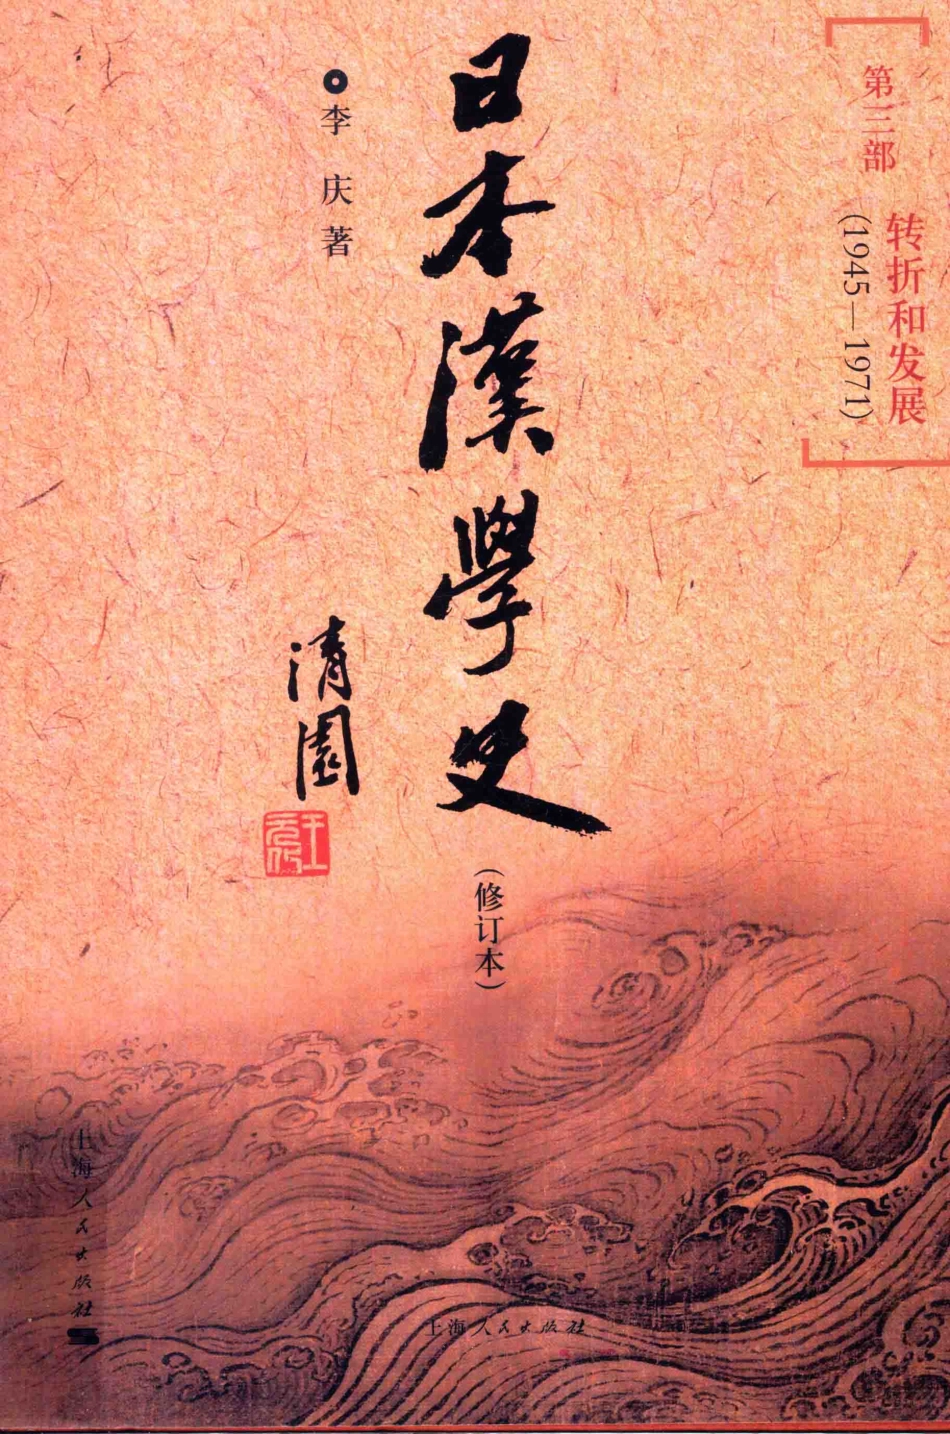 第三部
转折和发展
(1945—1971)
日本漢學史
(修订本)
李庆著
清園
王元化
上海人民出版社
上海人民出版社